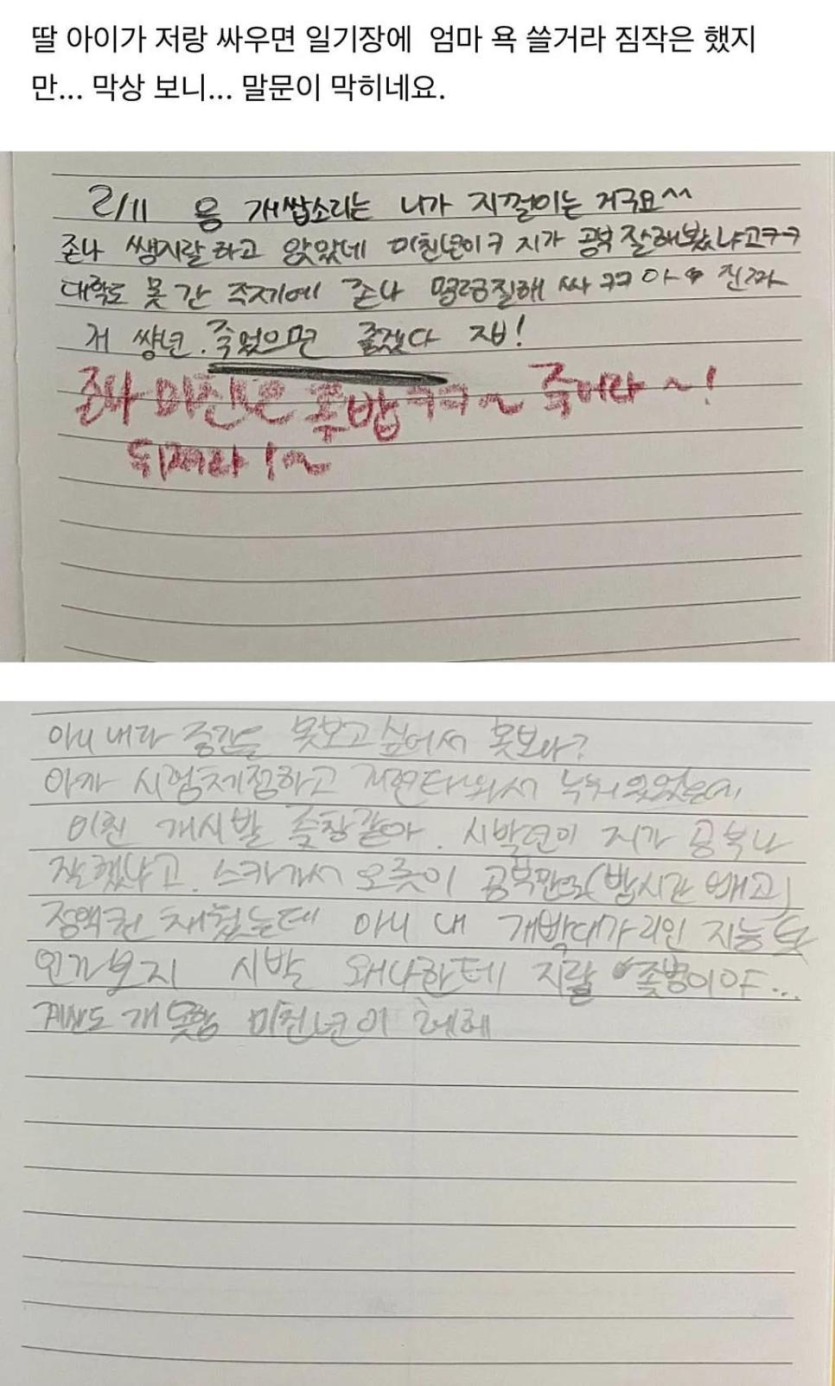 딸 아이가 저랑 싸우면 일기장에 엄마 욕 쓸거라 짐작은 했지
만... 막상 보니... 말문이 막히네요.
2/11 응 개쌉소리는 니가 지껄이는 거구요^^
존나 쌩지랄하고 앉았네 미친년이ㅋ 지가 공부 잘해봤냐고ㅋㅋ
대학도 못 간 주제에 존나 명령질해 싸 ㅋㅋ 아 진짜
저 썅년. 죽었으면 좋겠다 지발!
존나 미친년 좆밥 ㅋㅋ~ 죽어라 ~!
뒤져라 !~
아니 내가 중간을 못보고싶어서 못보나?
아까 시험채점하고 현타와서 누워있었는데
미친 개시발 좆창같아. 시박년이 지가 공부나
잘했냐고. 스카가서 오롯이 공부만으로(밥시간 빼고)
정액권 채웠는데 아니 내 개빡대가리인 지능
인가보지 시발 왜나한테 지랄 좆병이야...
계산도 개못함 미친년이 헤헤